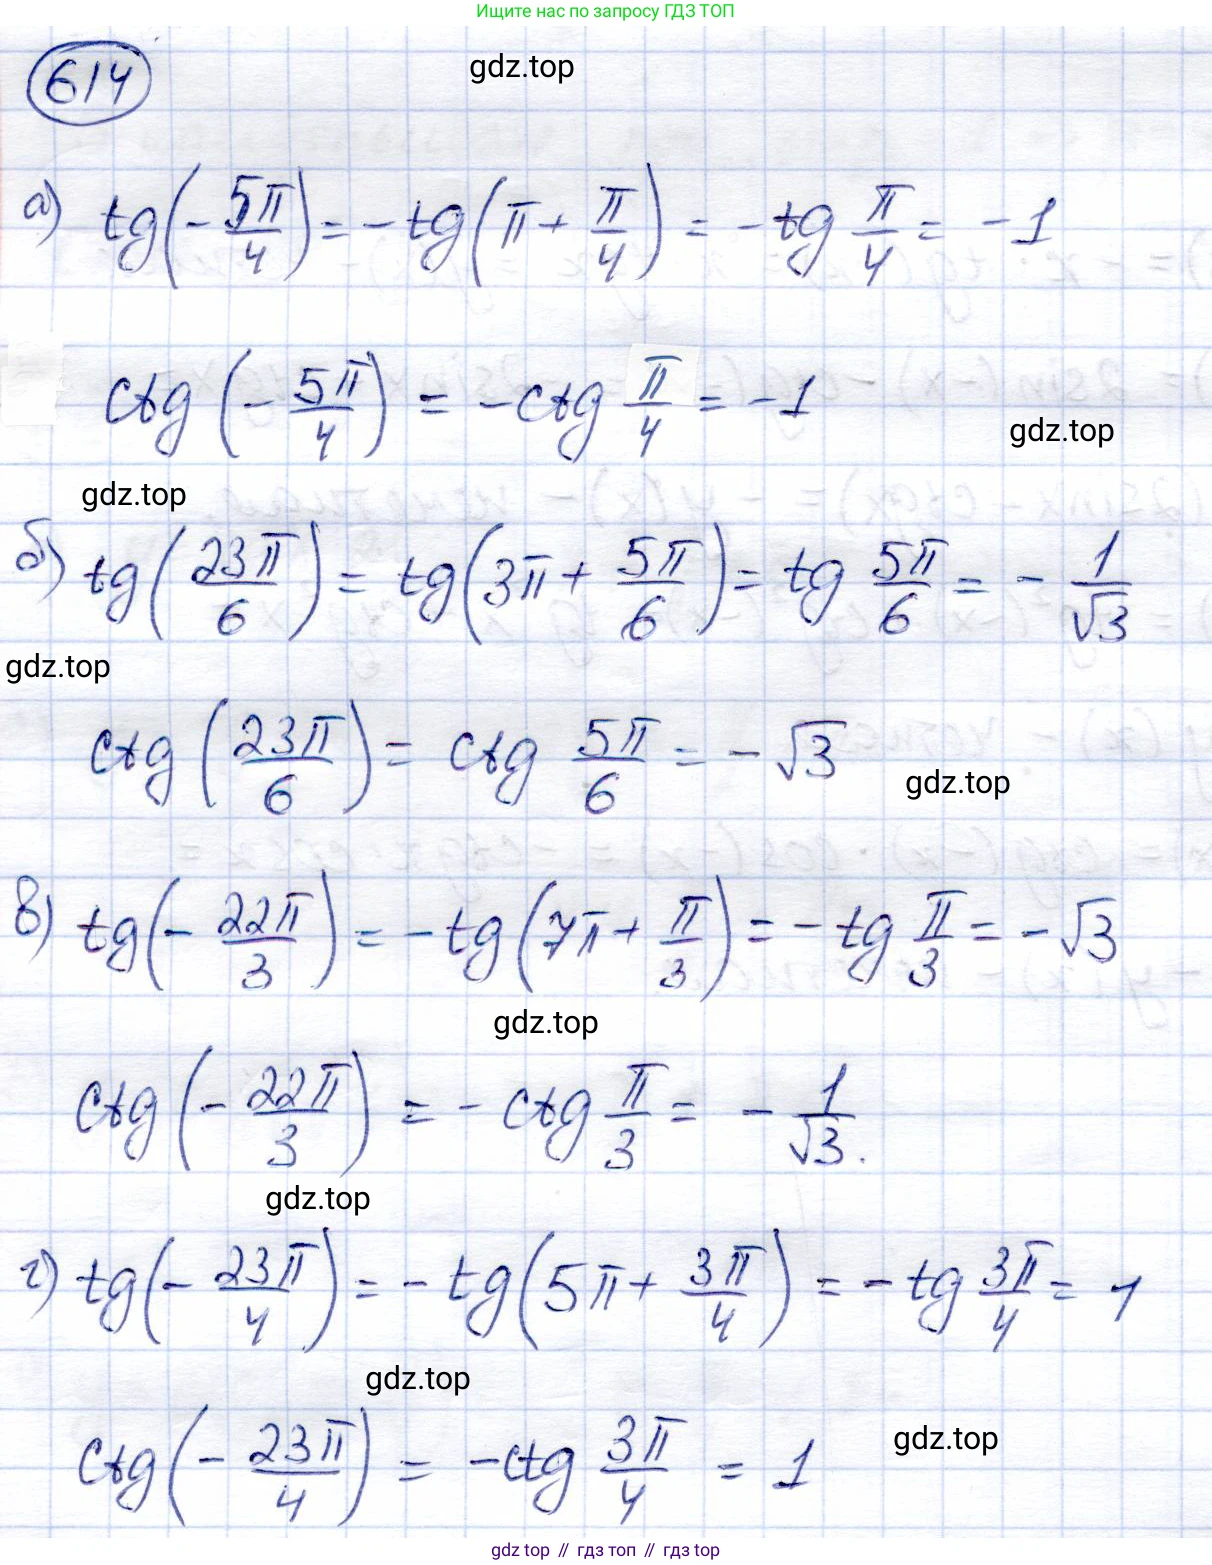 Ищите нас по запросу ГДЗ ТОП
614
gdz.top
а) tg(-5π/4) = -tg(π + π/4) = -tg π/4 = -1
ctg(-5π/4) = -ctg π/4 = -1
gdz.top
gdz.top
б) tg(23π/6) = tg(3π + 5π/6) = tg 5π/6 = -1/√3
gdz.top
ctg(23π/6) = ctg 5π/6 = -√3
gdz.top
в) tg(-22π/3) = -tg(7π + π/3) = -tg π/3 = -√3
gdz.top
ctg(-22π/3) = -ctg π/3 = -1/√3.
gdz.top
г) tg(-23π/4) = -tg(5π + 3π/4) = -tg 3π/4 = 1
gdz.top
gdz.top
ctg(-23π/4) = -ctg 3π/4 = 1
gdz top // гдз топ // гдз top